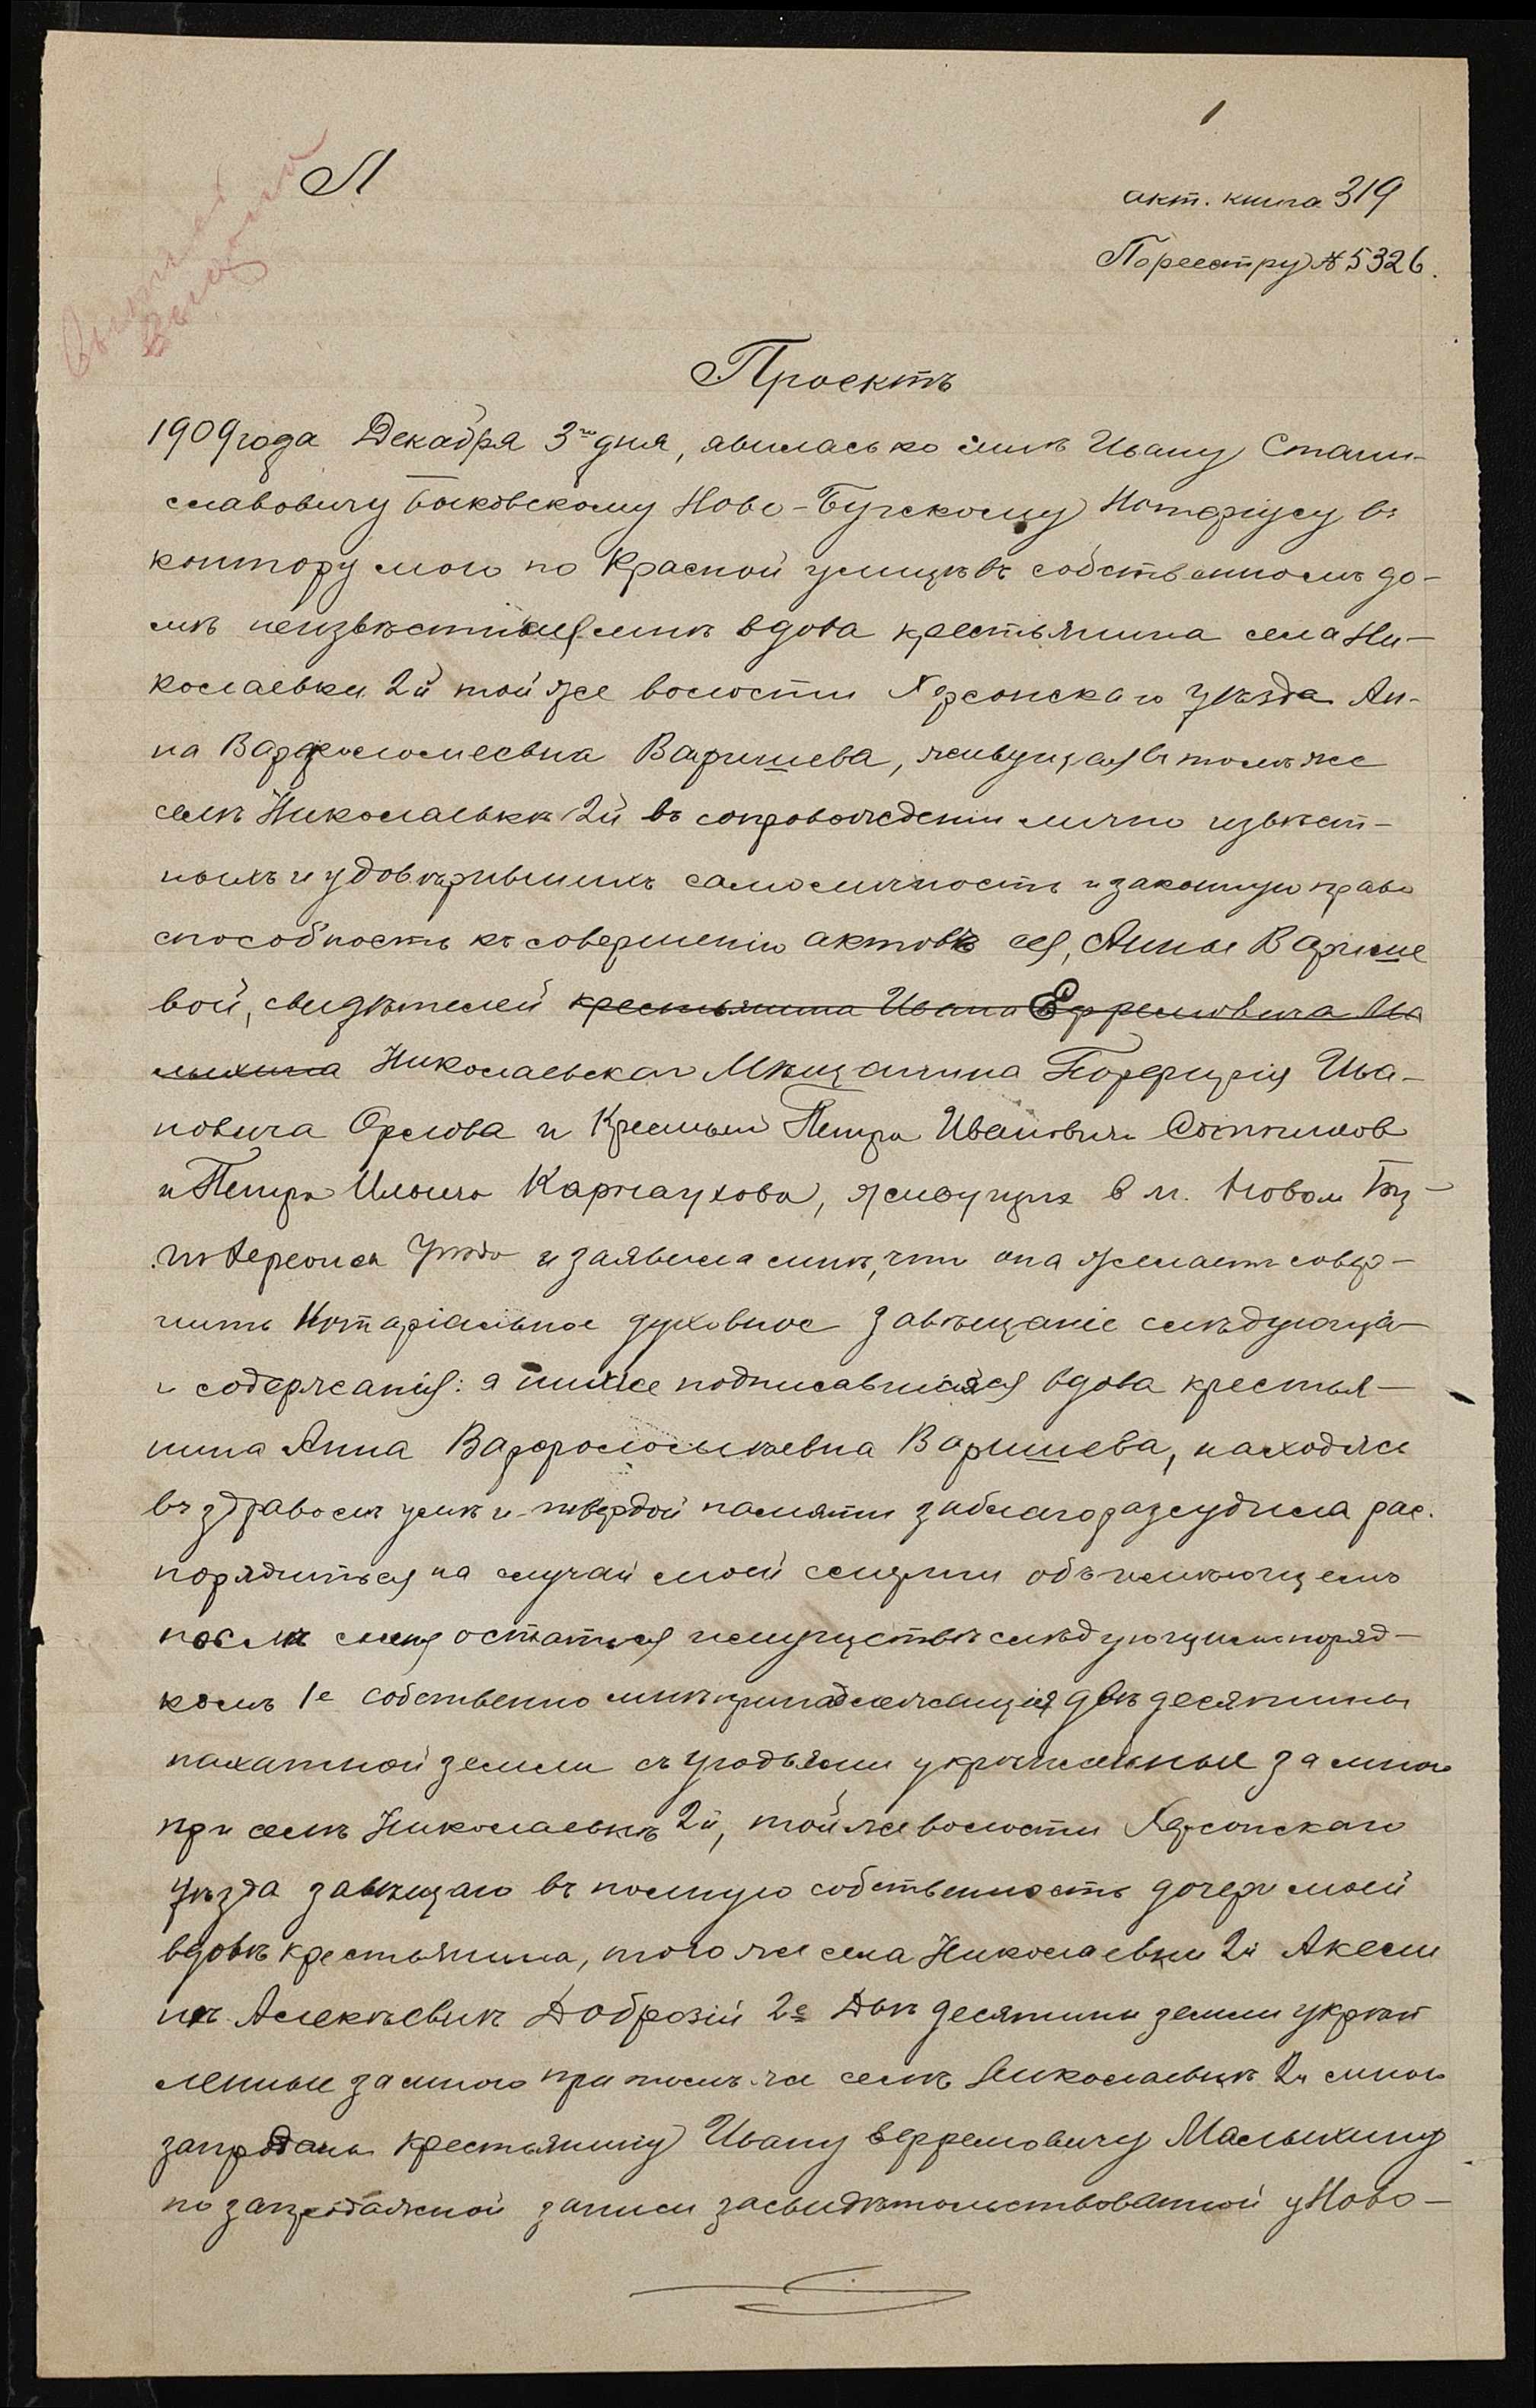 1
Л
акт. книга 319
По реестру № 5326.
Проектъ
1909 года Декабря 3го дня, явилась ко мнѣ Ивану Стани-
славовичу Быковскому Ново-Бугскому Нотаріусу въ
контору мою по Красной улицѣ въ собственномъ до-
мѣ неизвѣстная мнѣ вдова крестьянина села Ни-
колаевки 2й той же волости Херсонскаго уѣзда Ан-
на Варфоломеевна Варишева, живущая въ томъ же
селѣ Николаевкѣ 2й въ сопровожденіи лично извѣст-
ныхъ и удовѣрившихъ самоличность и законную право
способность къ совершенію актовъ ея, Анны Варише
вой, свидѣтелей крестьянина Ивана Ефремовича Ма
лыхина Николаевскаго Мѣщанина Порфирія Ива-
новича Орлова и Крестьян Петра Ивановича
и Петра Ильича Карнаухова, живущих в м. Новом Буг-
ѣ Херсонск уѣзда и заявила мнѣ, что она желает совер-
шить Нотаріальное духовное завѣщаніе слѣдующа-
го содержанія: я ниже подписавшаяся вдова крестья-
нина Анна Варфоломѣевна Варишева, находясь
въ здравомъ умѣ и твердой памяти заблагоразсудила рас-
порядиться на случай моей смерти объ имѣющемъ
послѣ меня остаться имуществѣ слѣдующимъ поряд-
комъ 1е собственно мнѣ принадлежащія двѣ десятины
пахатной земли съ угодьями укрѣпленные за мною
при селѣ Николаевкѣ 2й, той же волости Херсонскаго
уѣзда завѣщаю въ полную собственность дочери моей
вдовѣ крестьянина, того же села Николаевки 2й Аксеи
нѣ Алексѣевнѣ Доброзій 2е Двѣ десятины земли укрѣп
ленные за мною при томъ же селѣ Николаевкѣ 2й мною
запроданы крестьянину Ивану Ефремовичу Малыхину
по запродажной записи засвидѣтельствованной у Ново-